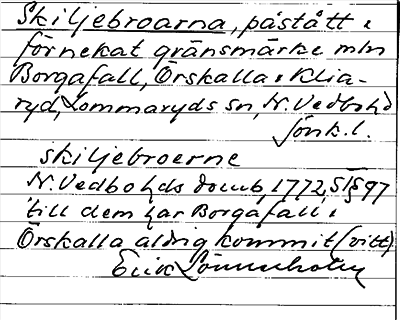 Skiljebroarna, påstått &
förnekat gränsmärke mln
Borgafall, Örskalla & Klia-
ryd, Lommaryds sn, N. Vedbo hd
Jönk. l.
skiljebroerne
N. Vedbo hds domb, 1772, § 97
till dem har Borgafall &
Örskalla aldrig kommit (vitt)
Erik Lönnerholm